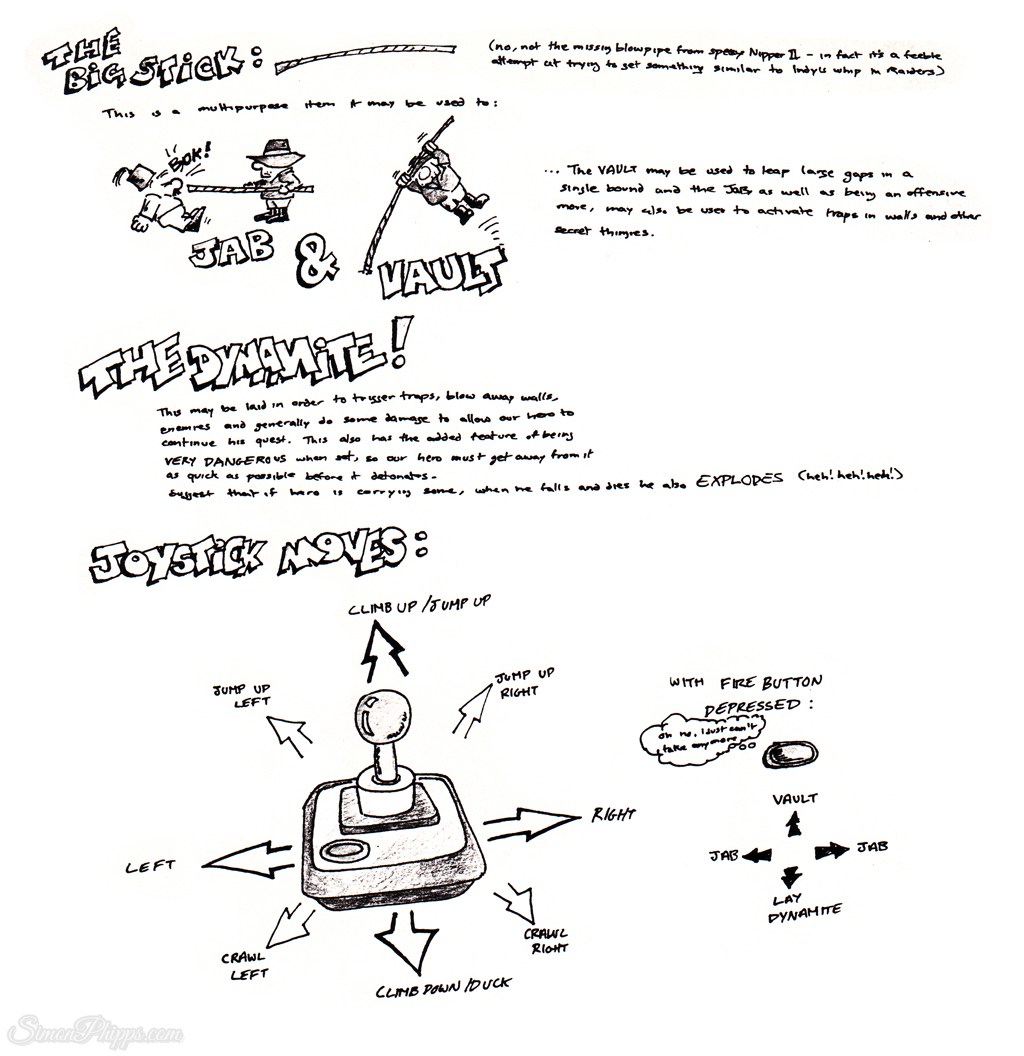 THE
BIG STICK:
(no, not the missing blowpipe from speedy Nipper II - in fact it's a feeble
attempt at trying to get something similar to Indy's whip in Raiders)
This is a multipurpose item it may be used to:
BOK!
JAB & VAULT
... The VAULT may be used to leap large gaps in a
single bound and the JAB, as well as being an offensive
move, may also be used to activate traps in walls and other
secret thingies.
THE DYNAMITE!
This may be laid in order to trigger traps, blow away walls,
enemies and generally do some damage to allow our hero to
continue his quest. This also has the added feature of being
VERY DANGEROUS when set, so our hero must get away from it
as quick as possible before it detonates.
Suggest that if hero is carrying some, when he falls and dies he also EXPLODES (heh! heh! heh!)
JOYSTICK MOVES:
CLIMB UP / JUMP UP
JUMP UP
LEFT
JUMP UP
RIGHT
LEFT
RIGHT
CRAWL
LEFT
CRAWL
RIGHT
CLIMB DOWN / DUCK
WITH FIRE BUTTON
DEPRESSED:
Oh no, I just can't
take anymore
VAULT
JAB
JAB
LAY
DYNAMITE
SimonPhipps.com